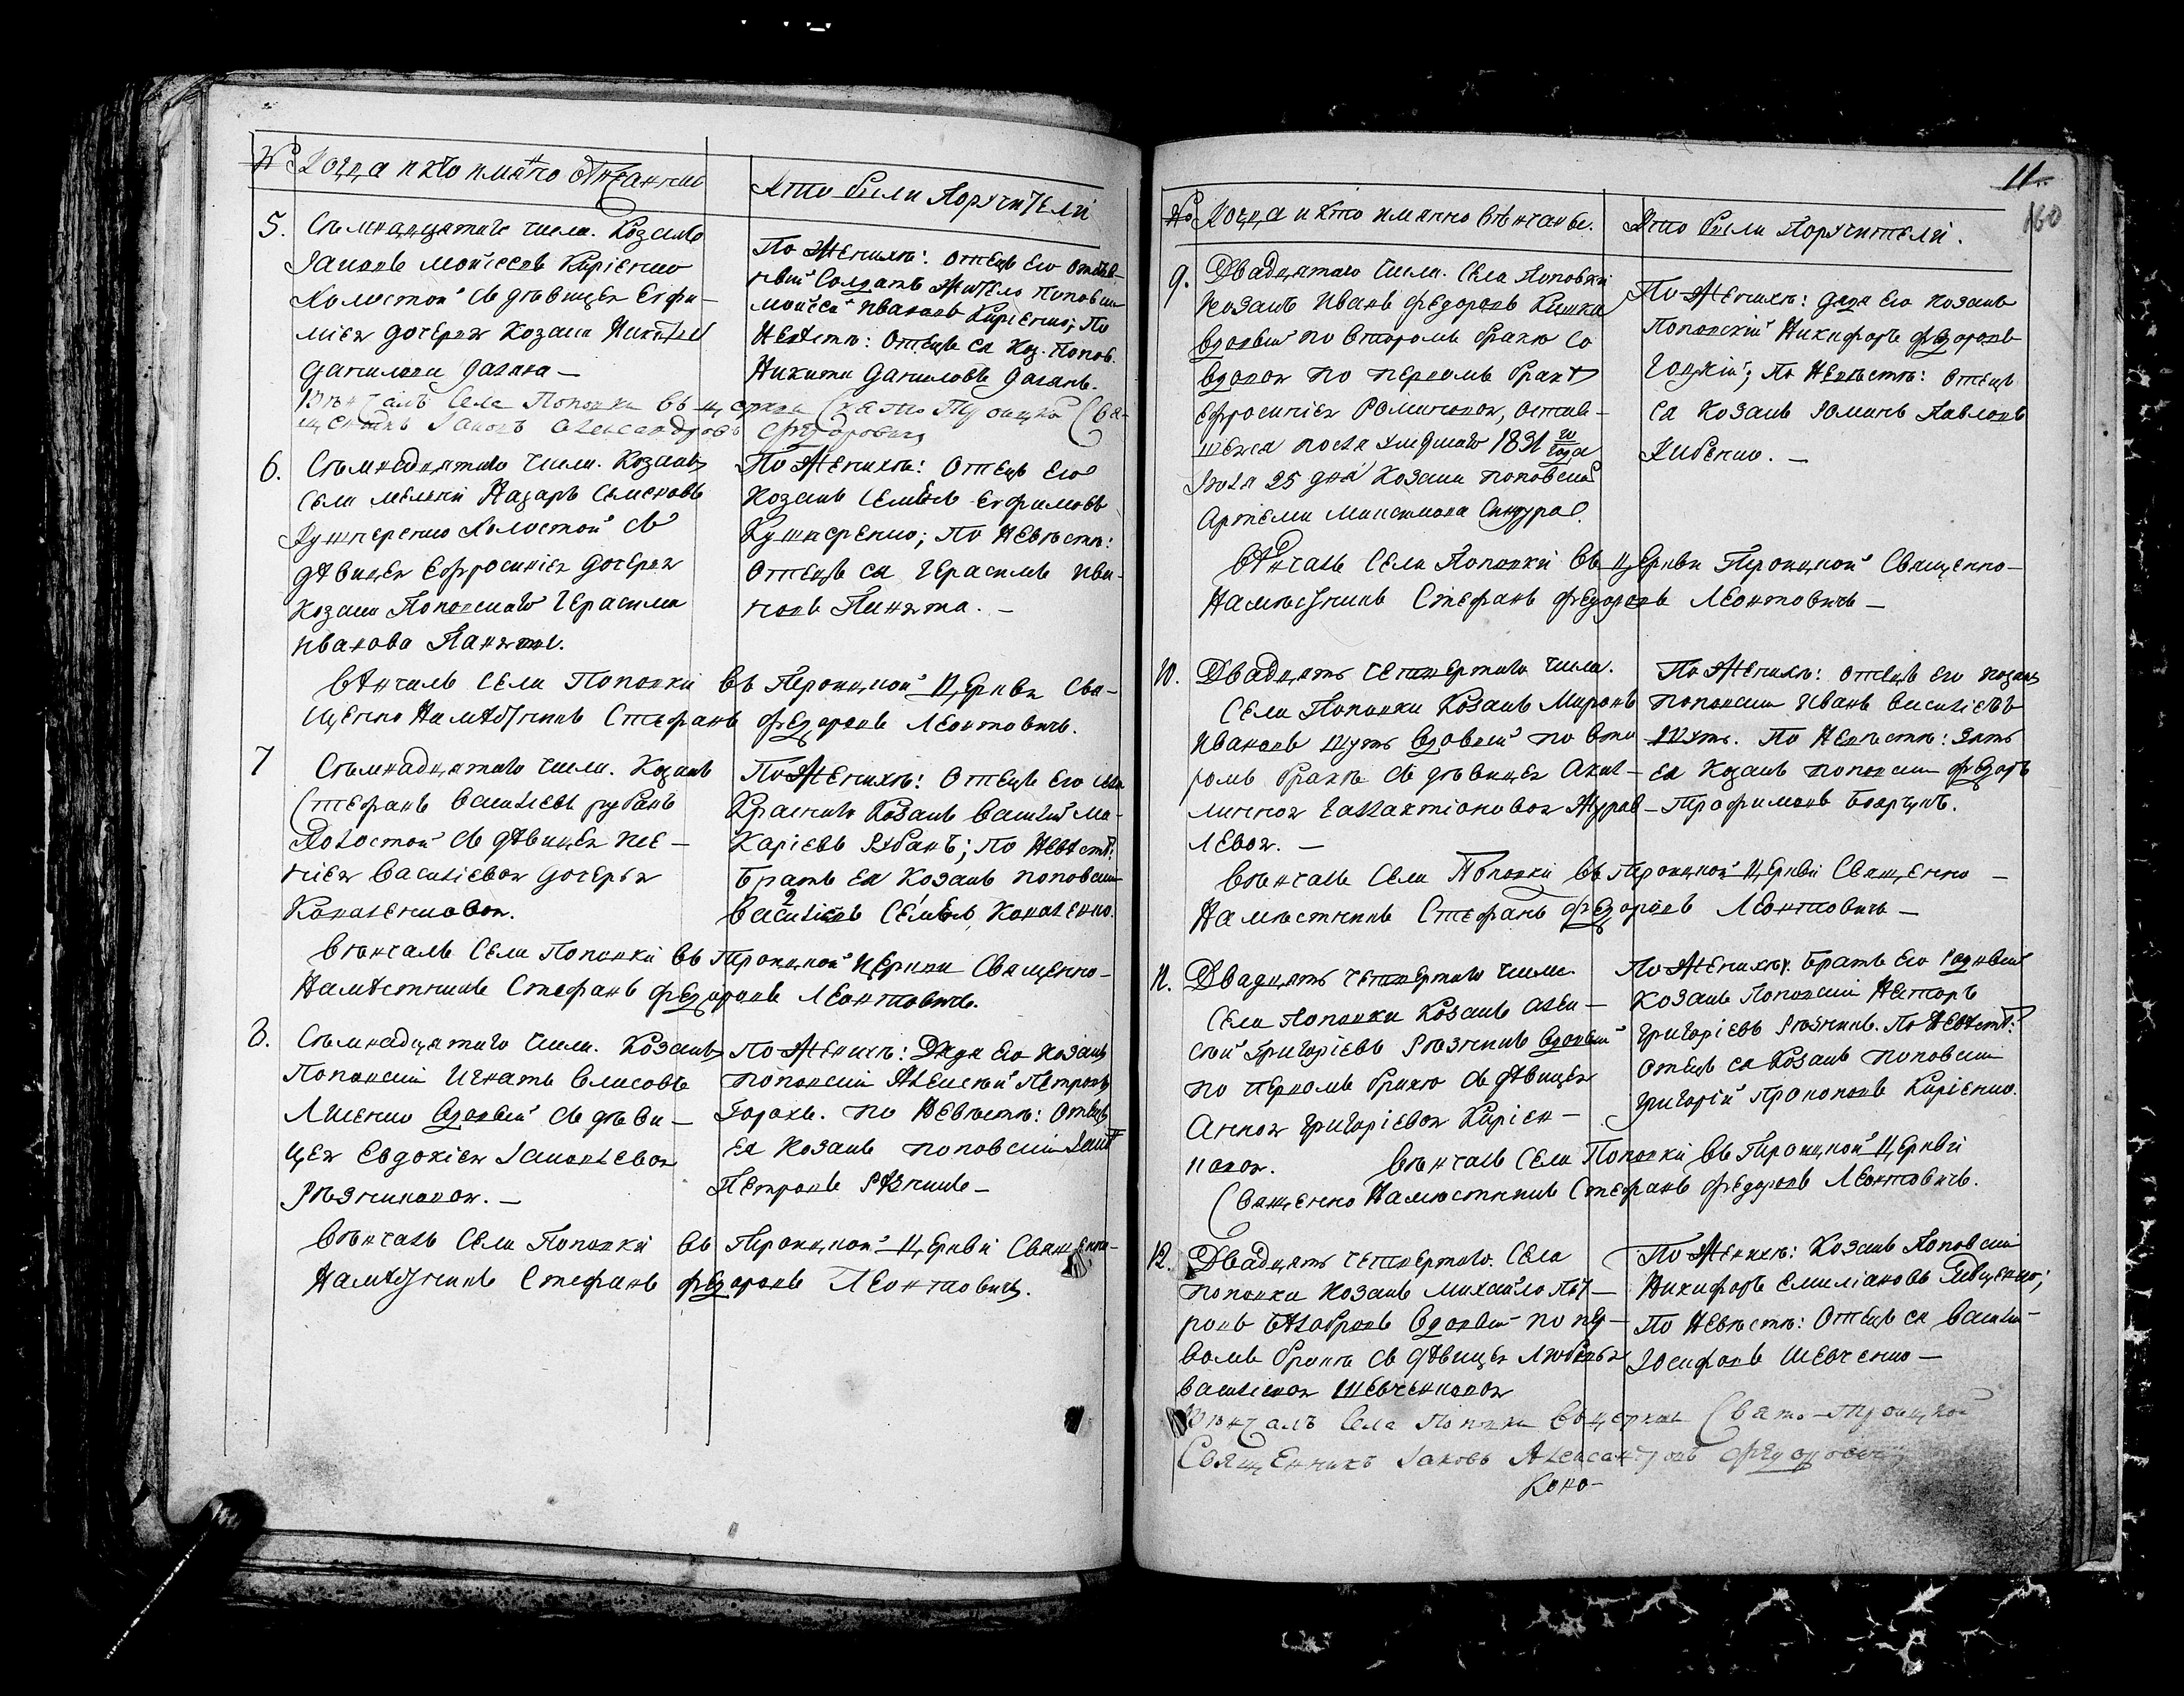 № Когда и кто имянно вѣнчанны
Кто были Поручители
5. Съмнадцятаго числа. Козакъ
Іаковъ Мойсеевъ Кирѣенко
Холостой съ дѣвицею Евфи-
міею дочерею Козака Никиты
Данилова Дагана —
Вѣнчалъ Села Поповки въ церкви Свято Троицкой Свя-
щенникъ Іаковъ Александровъ Федоровичъ
По Женихѣ: отецъ его отстав-
ный Солдатъ житель поповскій
Мойсей Ивановъ Кирѣенко; По
Невѣстѣ: Отецъ ея Коз. Попов.
Никита Даниловъ Даганъ.
6. Съмнадцятаго числа. Козакъ
Села Назаръ Семеновъ
Кушнеренко Холостой съ
дѣвицею Евфросиніею дочерею
Козака Поповскаго Герасима
Иванова
По Женихѣ: Отецъ Его
Козакъ Семенъ Евфимовъ
Кушнеренко; По Невѣстѣ:
Отецъ ея Герасимъ Ива-
новъ
вѣнчалъ Села Поповки въ Троицкой Церкви Свя-
щенно Намѣстникъ Стефанъ Федоровъ Леонтовичъ.
7 Съмнадцятаго числа. Козакъ
Стефанъ Васильевъ рубанъ
Холостой съ дѣвицею Ксе-
ніею Васильевою дочерью
Коваленковою.
По Женихѣ: Отецъ Его села
Краснаго Козакъ Василій Ма-
каріевъ Рубанъ; По Невѣстѣ:
Братъ Ея Козакъ поповскій
2
Васильевъ Семенъ Коваленко.
Вѣнчалъ Села Поповки въ Троицкой Церкви Священно-
Намѣстникъ Стефанъ Федоровъ Леонтовичъ.
8. Съмнадцятаго числа. Козакъ
Поповскій Игнатъ Власовъ
Лисенко Вдовый съ дѣви-
цею Евдокіею Іаковлевою
Рѣзниковою. —
По Женихѣ: Дядя Его Козакъ
поповскій Алексѣй Петровъ
Горохъ. По Невѣстѣ: Отецъ
Ея Козакъ поповскій
Петровъ Рѣзникъ —
Вѣнчалъ Села Поповки въ Троицкой Церкви Священно-
Намѣстникъ Стефанъ Федоровъ Леонтовичъ.
11.
160
№ Когда и кто имянно вѣнчаны.
Кто были Поручители.
9. Двадцятаго числа. Села Поповки
Козакъ Иванъ Федоровъ Кишка
Вдовый по второмъ бракѣ со
Вдовою по первомъ бракѣ
Ефросиніею Романовою, остав-
шеюся послѣ умершаго 1831 го года
Іюля 25 дня Козака поповскаго
Артема Максимова
По Женихѣ: дядя его козакъ
Поповскій Никифоръ Федоровъ
По Невѣстѣ: отецъ
ея Козакъ Романъ Павловъ
вѣнчалъ Села Поповки въ Церкви Троицкой Священно-
Намѣстникъ Стефанъ Федоровъ Леонтовичъ —
10. Двадцять четвертаго числа.
Села Поповки Козакъ Миронъ
Ивановъ Шутъ Вдовый по вто-
ромъ бракѣ съ дѣвицею Акил-
линою Галактіоновою Журав-
левою. —
По Женихѣ: отецъ его козакъ
поповскій Иванъ Васильевъ
Шутъ. По Невѣстѣ: зять
ея Козакъ поповскій Федоръ
Трофимовъ
Вѣнчалъ Села Поповки въ Троицкой Церкви Священно —
Намѣстникъ Стефанъ Федоровъ Леонтовичъ —
11. Двадцять четвертаго числа
Села Поповки Козакъ Алек-
сѣй Григоріевъ Рѣзникъ Вдовый
по первомъ бракѣ съ дѣвицею
Анною Григоріевою Кирѣен-
ковою.
По Женихѣ: Братъ его родный
Козакъ Поповскій Несторъ
Григоріевъ Рѣзникъ. По Невѣстѣ:
Отецъ ея Козакъ поповскій
Григорій Прокоповъ Кирѣенко.
Вѣнчалъ Села Поповки въ Троицкой Церкви
Священно Намѣстникъ Стефанъ Федоровъ Леонтовичъ.
12. Двадцять четвертаго. Села
Поповки Козакъ Михайло Пет-
ровъ Вдовый по пер-
вомъ бракѣ съ дѣвицею Любовью
Васильевою Шевченковою
По Женихѣ: Козакъ Поповскій
Никифоръ Емиліановъ
По Невѣстѣ: Отецъ ея Василій
Іосифовъ Шевченко —
Вѣнчалъ Села Поповки въ церкви Свято-Троицкой
Священникъ Іаковъ Александровъ Федоровичъ
Коно-